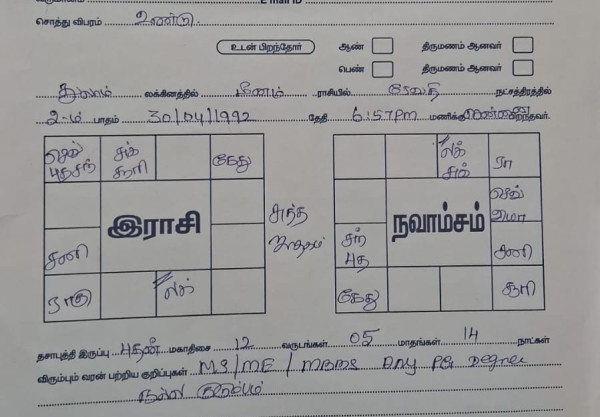 E mail ID
சொத்து விபரம் உண்டு.
உடன் பிறந்தோர் ஆண் திருமணம் ஆனவர்
பெண் திருமணம் ஆனவர்
துலாம் லக்கினத்தில் மீனம் ராசியில் ரேவதி நட்சத்திரத்தில்
2-ம் பாதம் 30/04/1992 தேதி 6:57PM மணிக்கு பிறந்தவர்.
செவ் சுக் கேது
புத சந் சூரி
இராசி
சனி
ராகு லக்
லக் ரா
சுக்
நவாம்சம்
செவ்
சந்
புத சனி
கேது சூரி
தசாபுத்தி இருப்பு புதன் மகாதிசை 12 வருடங்கள் 05 மாதங்கள் 14 நாட்கள்
விரும்பும் வரன் பற்றிய குறிப்புகள் MS/ME/MBBS Any PG Degree
நல்ல குடும்பம்